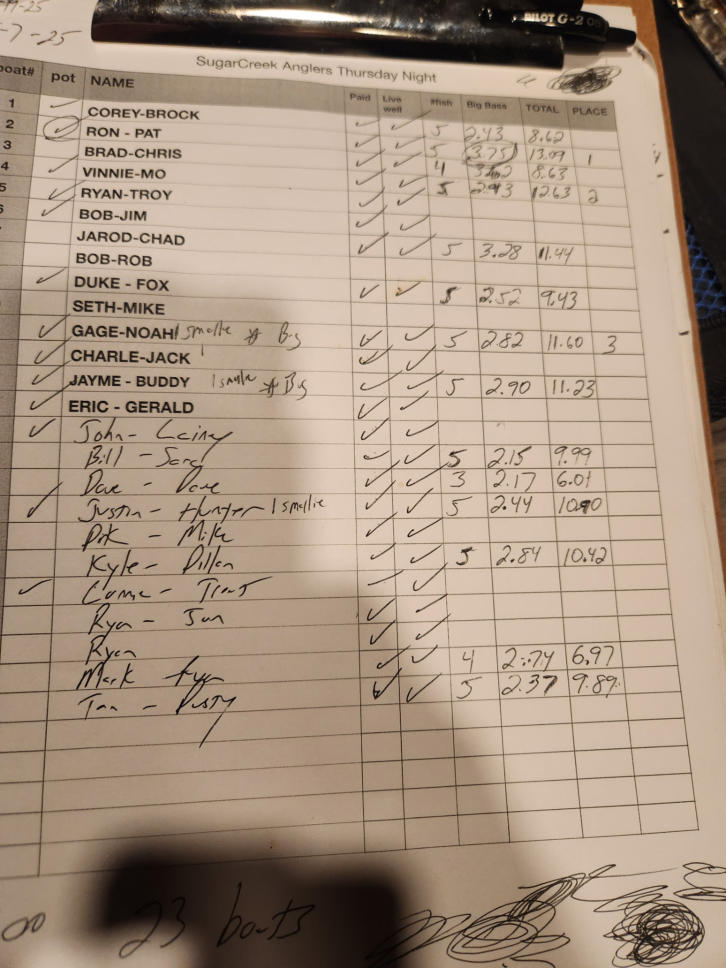 PILOT G-2
7-25
SugarCreek Anglers Thursday Night
boat# pot NAME Paid Live well #fish Big Bass TOTAL PLACE
1 COREY-BROCK 5 2.43 8.62
2 RON - PAT 5 3.75 13.09 1
3 BRAD-CHRIS 4 8.63
4 VINNIE-MO 5 2.93 12.63 2
5 RYAN-TROY
6 BOB-JIM
JAROD-CHAD 5 3.28 11.44
BOB-ROB
DUKE - FOX 5 2.52 9.43
SETH-MIKE
GAGE-NOAH 1 smallie Big 5 2.82 11.60 3
CHARLE-JACK
JAYME - BUDDY 1 smallie Big 5 2.90 11.23
ERIC - GERALD
John - Lainey
Bill - 5 2.15 9.99
Dave - Dave 3 2.17 6.01
Justin - Hunter 1 smallie 5 2.44 10.90
- Mike
Kyle - Dillon 5 2.84 10.42
Ryan -
Ryan
Mark 4 2.74 6.97
- Dusty 5 2.37 9.89
23 boats